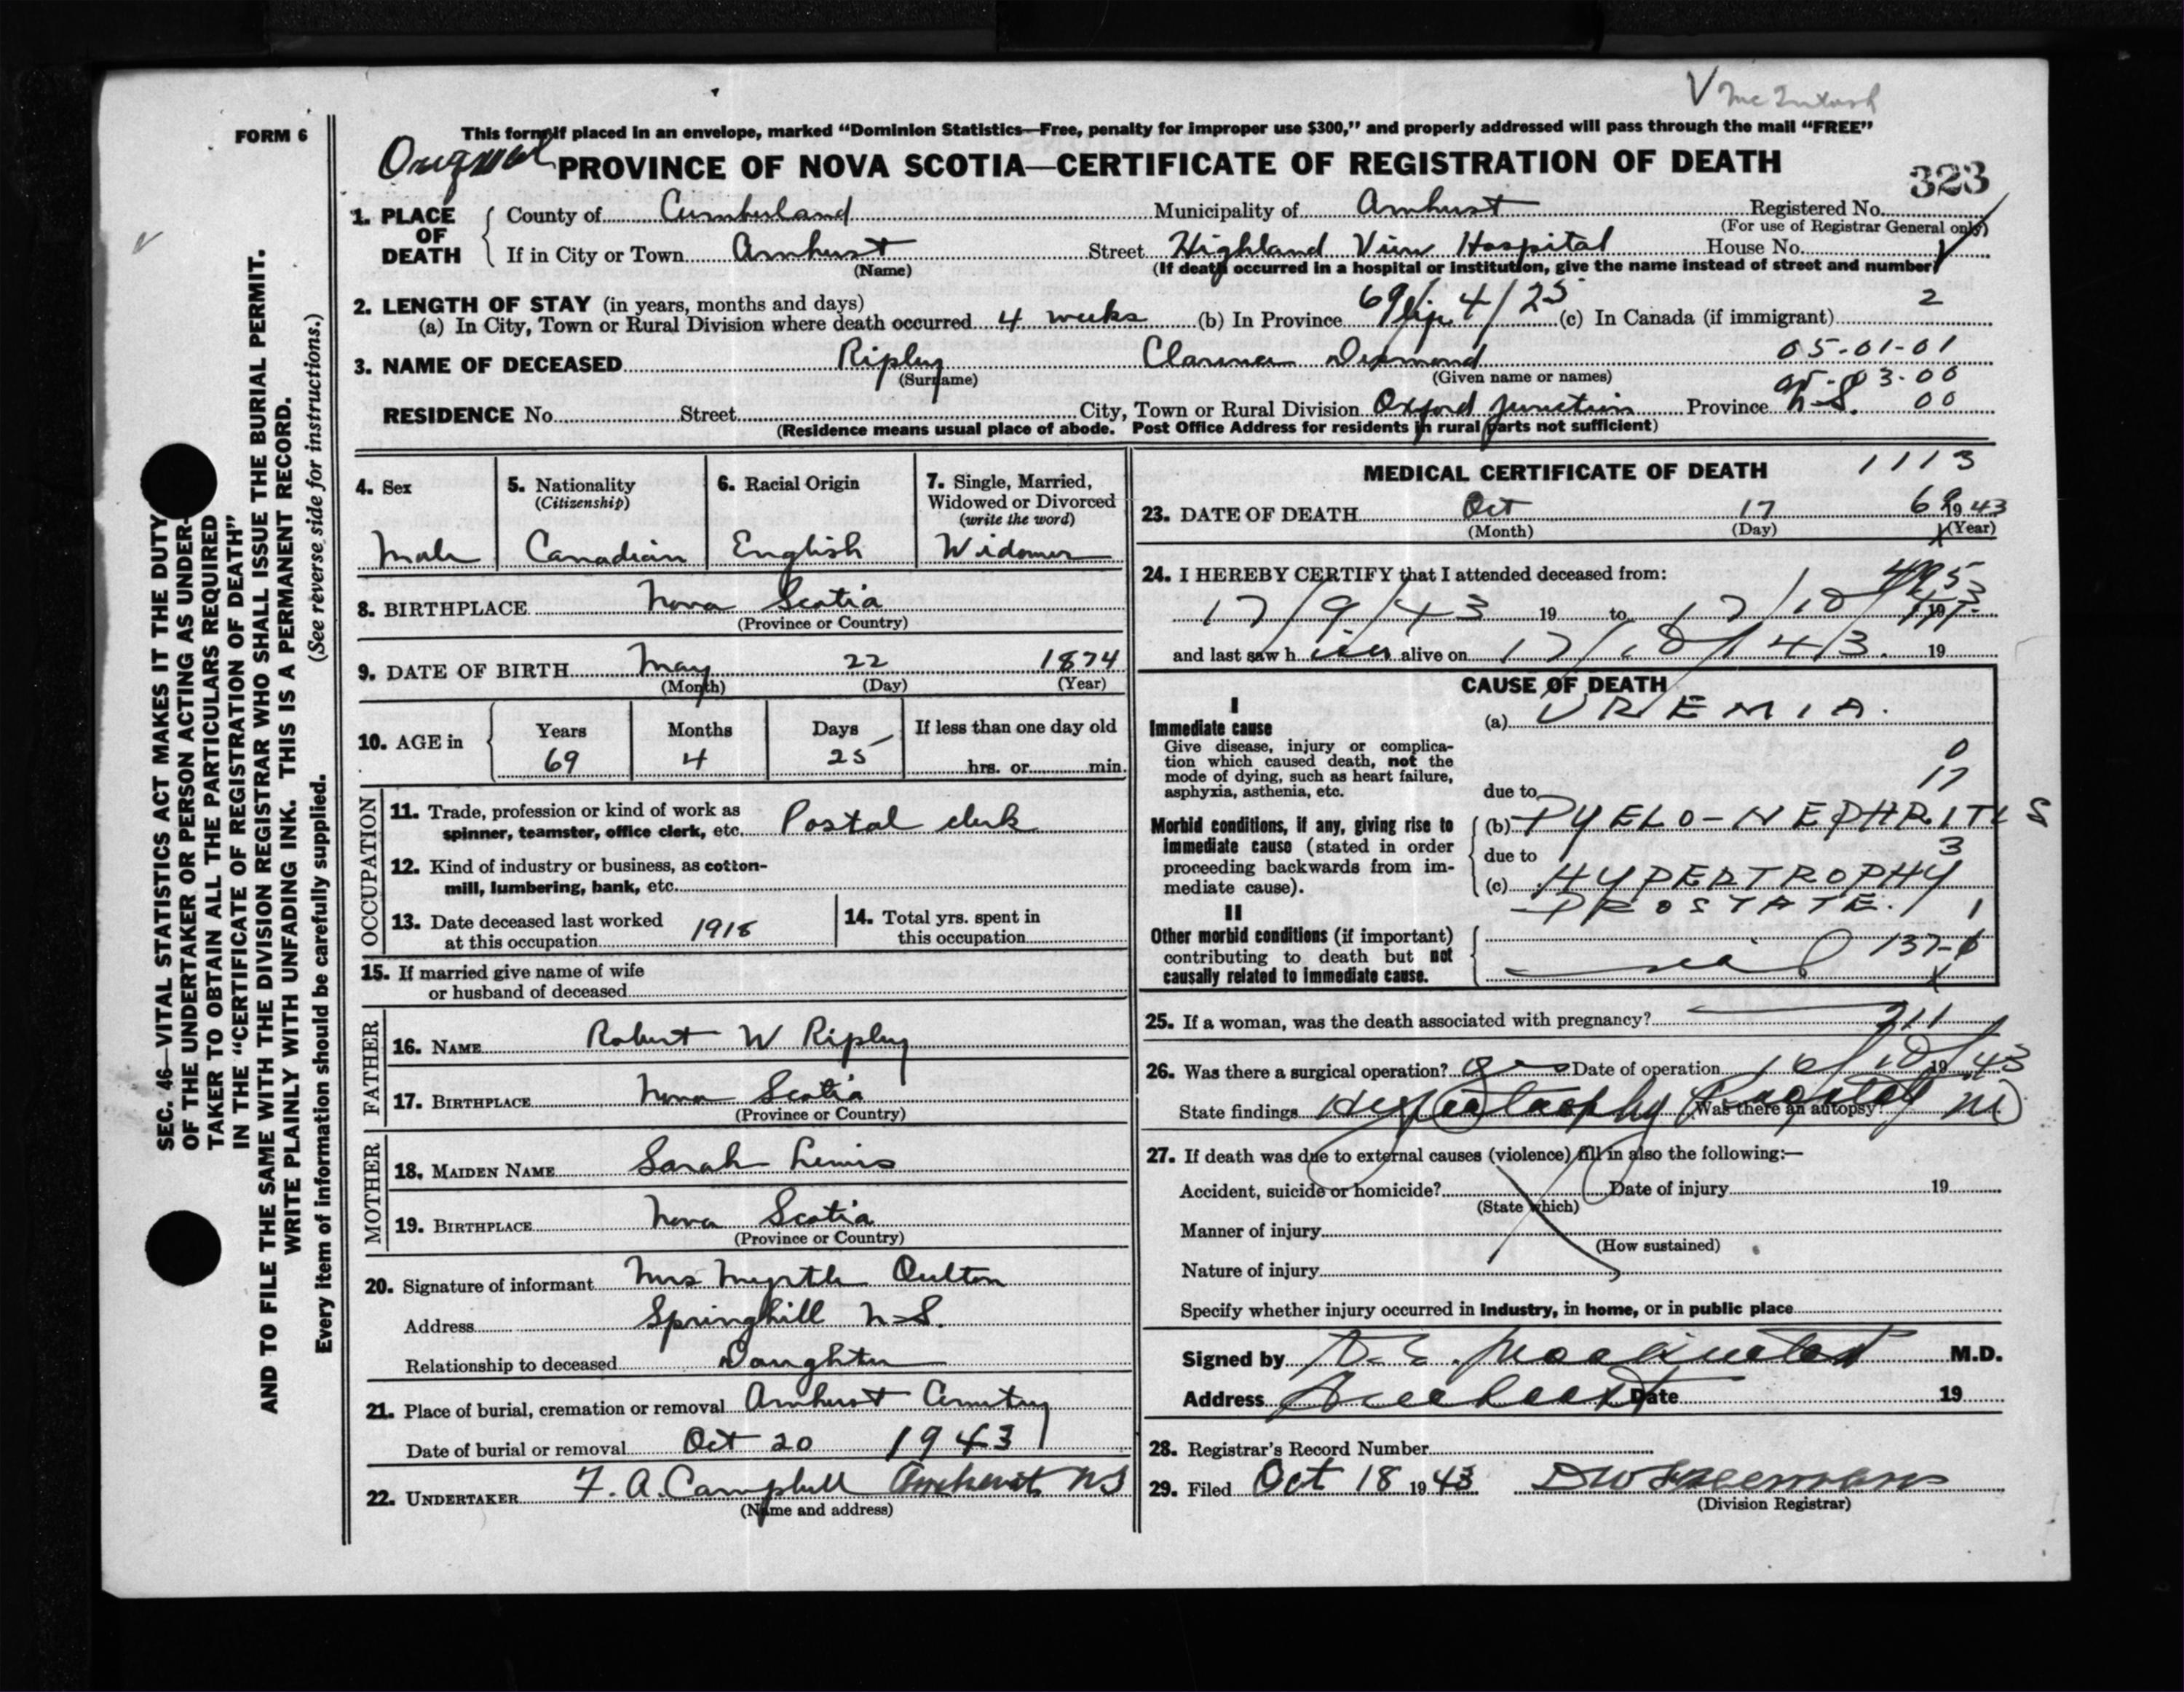 V McIntosh
FORM 6
This form if placed in an envelope, marked "Dominion Statistics—Free, penalty for improper use $300," and properly addressed will pass through the mail "FREE"
Original PROVINCE OF NOVA SCOTIA—CERTIFICATE OF REGISTRATION OF DEATH
323
1. PLACE OF DEATH County of Cumberland Municipality of Amherst Registered No.
(For use of Registrar General only)
If in City or Town Amherst Street Highland View Hospital House No.
(Name) (If death occurred in a hospital or institution, give the name instead of street and number)
2. LENGTH OF STAY (in years, months and days)
(a) In City, Town or Rural Division where death occurred 4 weeks (b) In Province 69/4/25 (c) In Canada (if immigrant) 2
3. NAME OF DECEASED Ripley Clarence Desmond 05-01-01
(Surname) (Given name or names)
03-00
RESIDENCE No. Street City, Town or Rural Division Oxford Junction Province N.S. 00
(Residence means usual place of abode. Post Office Address for residents in rural parts not sufficient)
4. Sex
Male
5. Nationality
(Citizenship)
Canadian
6. Racial Origin
English
7. Single, Married, Widowed or Divorced
(write the word)
Widower
8. BIRTHPLACE Nova Scotia
(Province or Country)
9. DATE OF BIRTH May 22 1874
(Month) (Day) (Year)
10. AGE in Years Months Days If less than one day old
69 4 25 hrs. or min.
OCCUPATION
11. Trade, profession or kind of work as
spinner, teamster, office clerk, etc. Postal clerk
12. Kind of industry or business, as cotton-
mill, lumbering, bank, etc.
13. Date deceased last worked
at this occupation 1918
14. Total yrs. spent in
this occupation
15. If married give name of wife
or husband of deceased
FATHER
16. NAME Robert W Ripley
17. BIRTHPLACE Nova Scotia
(Province or Country)
MOTHER
18. MAIDEN NAME Sarah Lewis
19. BIRTHPLACE Nova Scotia
(Province or Country)
20. Signature of informant Mrs Myrtle Oulton
Address Springhill N.S.
Relationship to deceased Daughter
21. Place of burial, cremation or removal Amherst Cemetry
Date of burial or removal Oct 20 1943
22. UNDERTAKER F. A. Campbell Amherst NS
(Name and address)
MEDICAL CERTIFICATE OF DEATH 1113
23. DATE OF DEATH Oct 17 1943
(Month) (Day) (Year)
69
24. I HEREBY CERTIFY that I attended deceased from:
17/9/43 19 to 17/10/43 19
and last saw h im alive on 17/10/43. 19
CAUSE OF DEATH
I
Immediate cause
Give disease, injury or complica-
tion which caused death, not the
mode of dying, such as heart failure,
asphyxia, asthenia, etc.
(a) UREMIA.
0
17
due to
Morbid conditions, if any, giving rise to
immediate cause (stated in order
proceeding backwards from im-
mediate cause).
(b) PYELO-NEPHRITIS
due to 3
(c) HYPERTROPHY
PROSTATE. 1
II
Other morbid conditions (if important)
contributing to death but not
causally related to immediate cause.
137-
25. If a woman, was the death associated with pregnancy?
211
26. Was there a surgical operation? yes Date of operation 10/10/43 19
State findings Hypertrophy Prostate Was there an autopsy? no
27. If death was due to external causes (violence) fill in also the following:—
Accident, suicide or homicide? Date of injury 19
(State which)
Manner of injury
(How sustained)
Nature of injury
Specify whether injury occurred in industry, in home, or in public place
Signed by M.D.
Address Amherst Date 19
28. Registrar's Record Number
29. Filed Oct 18 1943
(Division Registrar)
SEC. 46—VITAL STATISTICS ACT MAKES IT THE DUTY
OF THE UNDERTAKER OR PERSON ACTING AS UNDER-
TAKER TO OBTAIN ALL THE PARTICULARS REQUIRED
IN THE "CERTIFICATE OF REGISTRATION OF DEATH"
AND TO FILE THE SAME WITH THE DIVISION REGISTRAR WHO SHALL ISSUE THE BURIAL PERMIT.
WRITE PLAINLY WITH UNFADING INK. THIS IS A PERMANENT RECORD.
Every item of information should be carefully supplied. (See reverse side for instructions.)